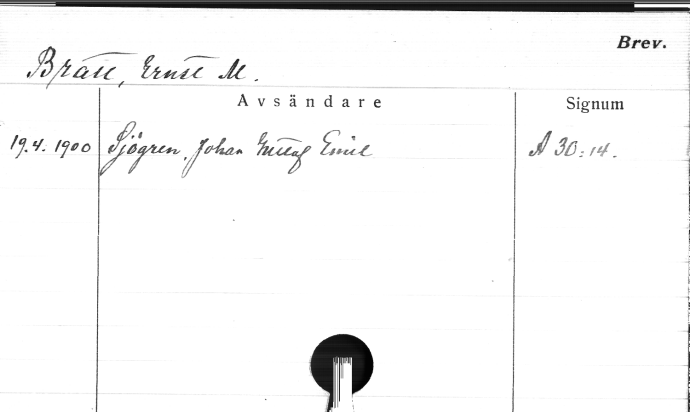 Brev.
Brate, Ernst M.
Avsändare
Signum
19.4. 1900 Sjögren, Johan Gustaf Emil A 30:14.